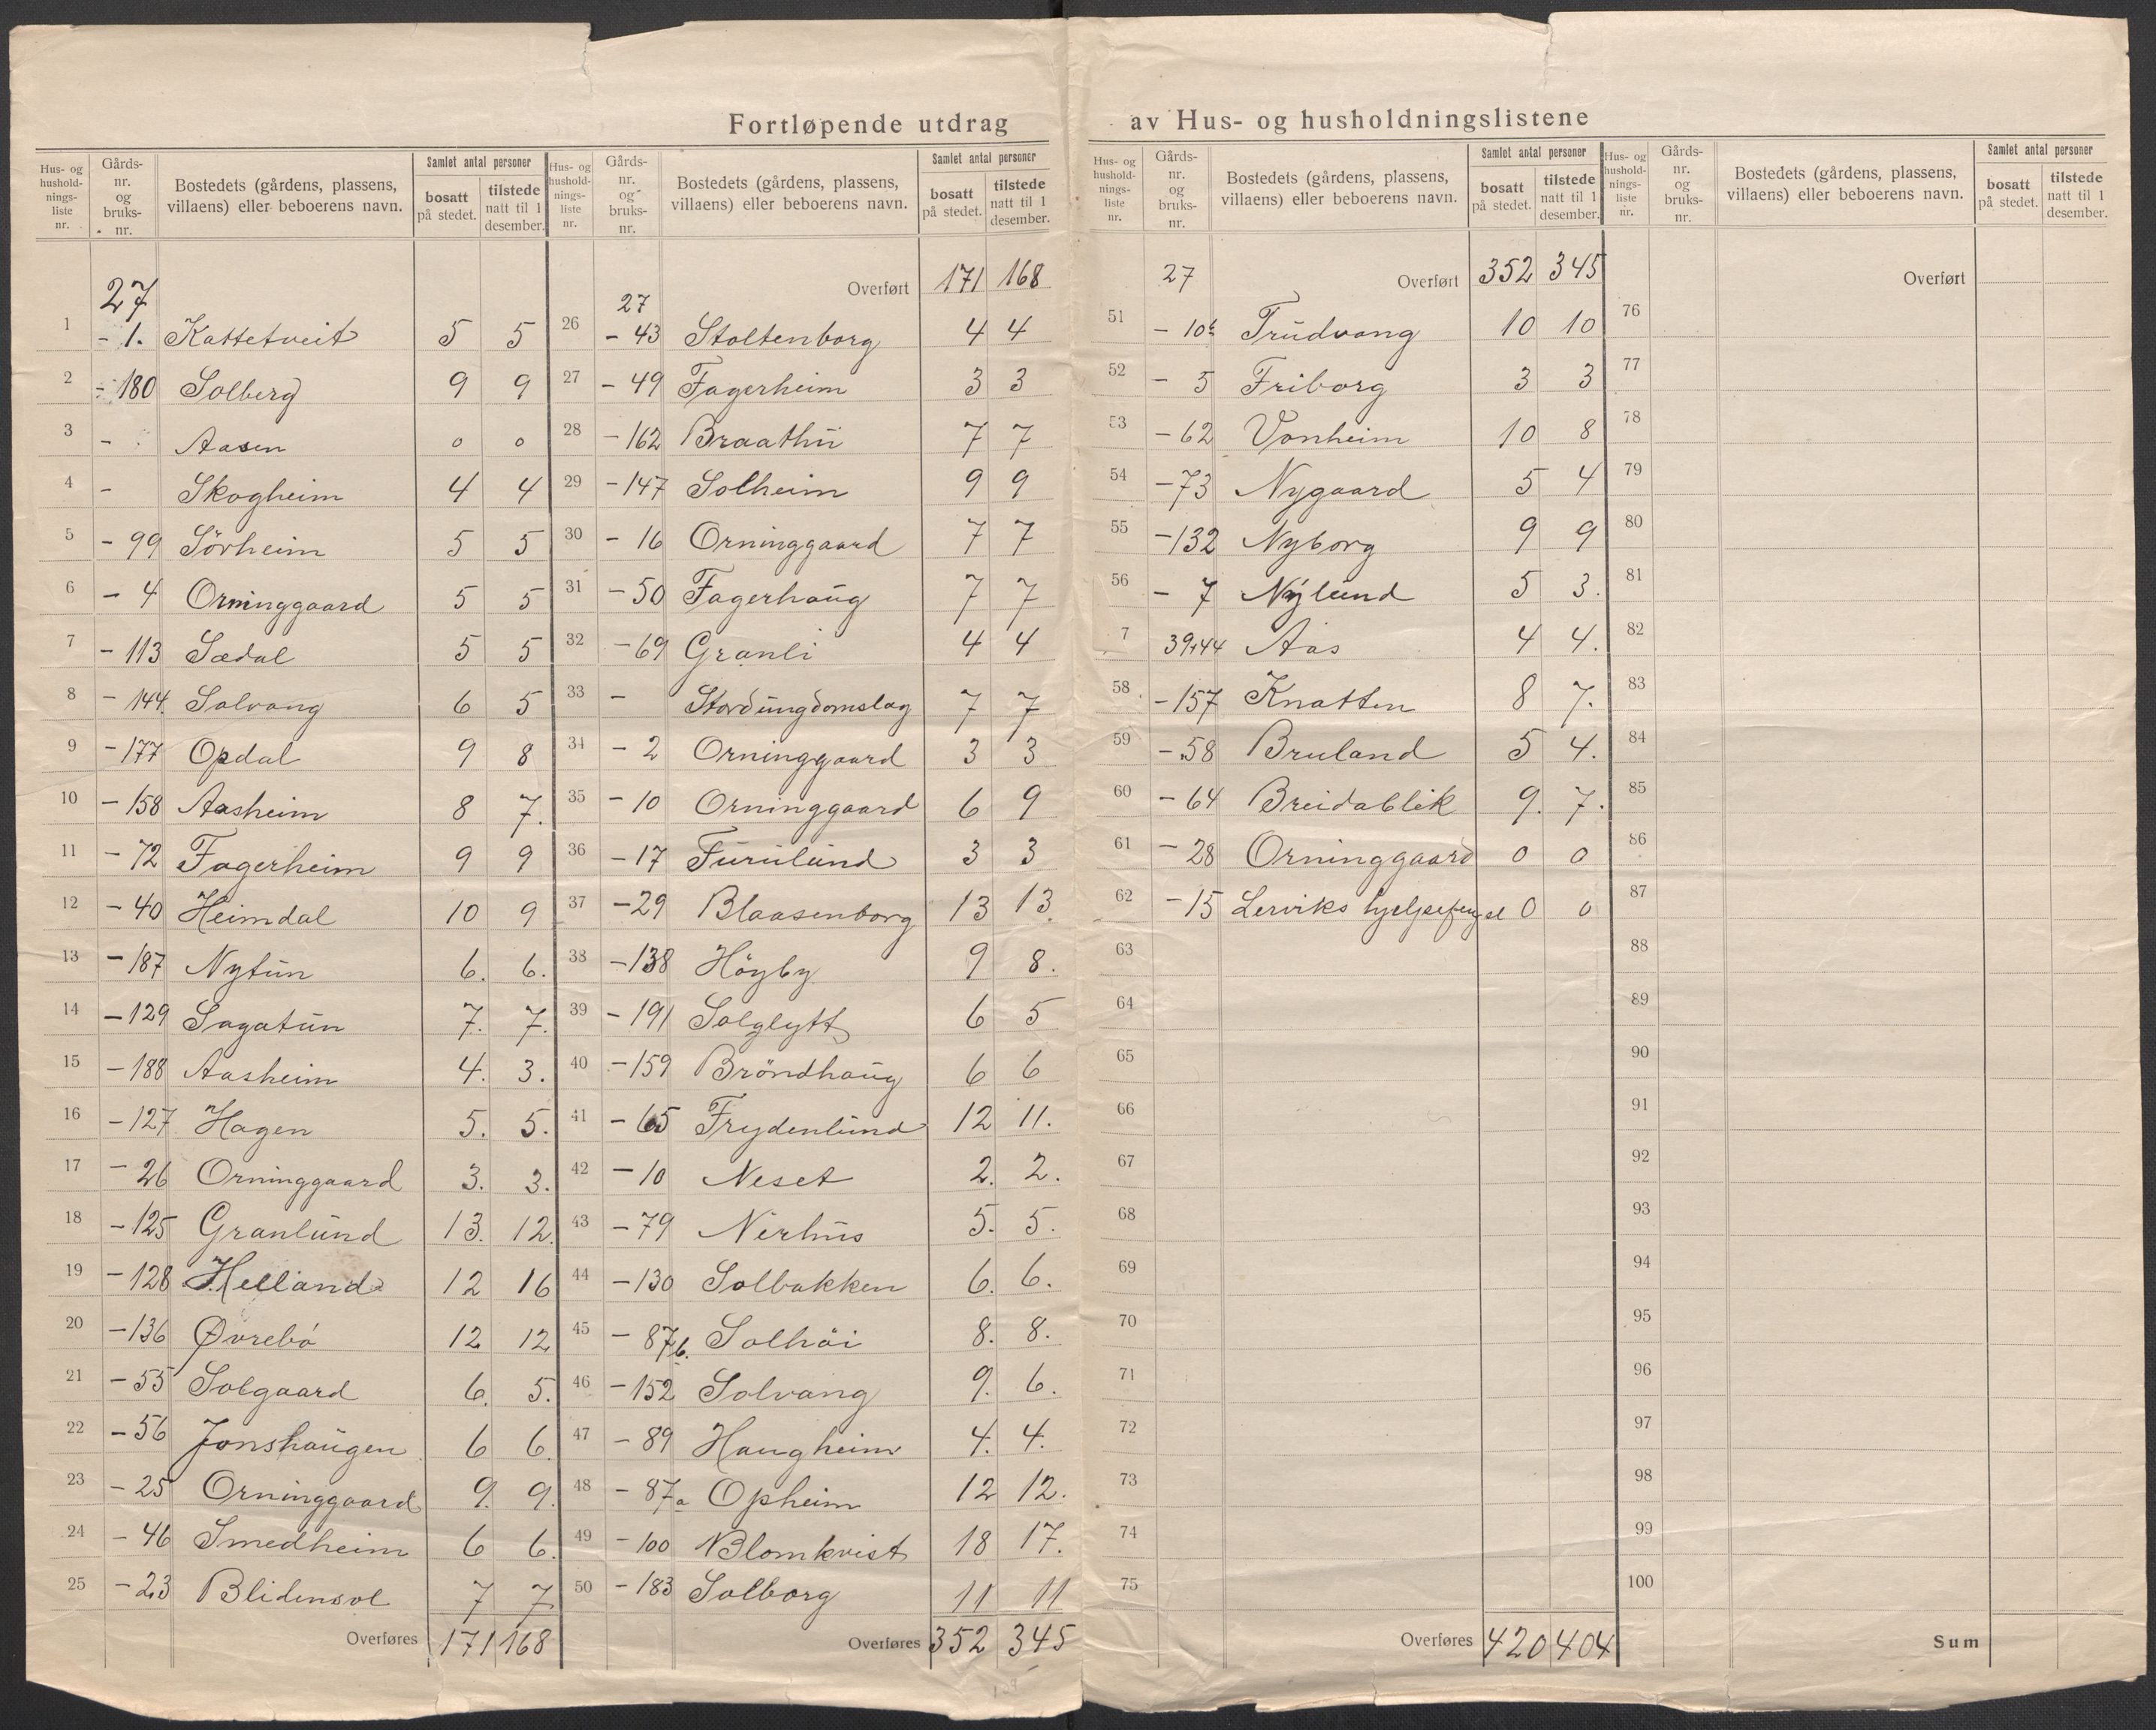 Fortløpende utdrag av Hus- og husholdningslistene
Hus- og husholdnings-liste nr. | Gårds-nr. og bruks-nr. | Bostedets (gårdens, plassens, villaens) eller beboerens navn. | Samlet antal personer bosatt på stedet. | tilstede natt til 1 desember.
27
1 - 1. Kattetveit 5 5
2 - 180 Solberg 9 9
3 - Aasen 0 0
4 - Skogheim 4 4
5 - 99 Sörheim 5 5
6 - 4 Orninggaard 5 5
7 - 113 Sædal 5 5
8 - 144. Solvang 6 5
9 - 177 Opdal 9 8
10 - 158 Aasheim 8 7.
11 - 72 Fagerheim 9 9
12 - 40 Heimdal 10 9
13 - 187 Nytun 6. 6.
14 - 129 Sagatun 7. 7.
15 - 188 Aasheim 4. 3.
16 - 127 Hagen 5. 5.
17 - 26 Orninggaard 3. 3.
18 - 125 Granlund 13. 12.
19 - 128 Helland 12 16
20 - 136 Øvrebö 12 12
21 - 55 Solgaard 6. 5.
22 - 56 Jonshaugen 6 6.
23 - 25 Orninggaard 9. 9.
24 - 46 Smedheim 6 6.
25 - 23 Blidensol 7 7
Overføres 171 168
Hus- og husholdnings-liste nr. | Gårds-nr. og bruks-nr. | Bostedets (gårdens, plassens, villaens) eller beboerens navn. | Samlet antal personer bosatt på stedet. | tilstede natt til 1 desember.
Overført 171 168
27
26 - 43 Stoltenborg 4 4
27 - 49 Fagerheim 3 3
28 - 162 Braathu 7 7
29 - 147 Solheim 9 9
30 - 16 Orninggaard 7 7
31 - 50 Fagerhaug 7 7
32 - 69 Granli 4 4
33 - Stordungdomslag 7 7
34 - 2 Orninggaard 3 3
35 - 10 Orninggaard 6 9
36 - 17 Furulund 3 3
37 - 29 Blaasenborg 13 13
38 - 138 Höyby 9 8.
39 - 191 Solglytt 6 5
40 - 159 Bröndhaug 6 6
41 - 65 Frydenlund 12 11.
42 - 10 Neset 2. 2.
43 - 79 Nerhus 5. 5.
44 - 130 Solbakken 6. 6.
45 - 87b. Solhöi 8. 8.
46 - 152 Solvang 9. 6.
47 - 89 Haugheim 4. 4.
48 - 87a Opheim 12 12.
49 - 100 Blomkvist 18 17.
50 - 183 Solborg 11 11
Overføres 352 345
Hus- og husholdnings-liste nr. | Gårds-nr. og bruks-nr. | Bostedets (gårdens, plassens, villaens) eller beboerens navn. | Samlet antal personer bosatt på stedet. | tilstede natt til 1 desember.
27 Overført 352 345
51 - Trudvang 10 10
52 - 5 Friborg 3 3
53 - 62 Vonheim 10 8
54 - 73 Nygaard 5 4
55 - 132 Nyborg 9 9
56 - 7 Nylund 5 3.
7 39+44 Aas 4 4.
58 - 157 Knatten 8 7.
59 - 58 Bruland 5 4.
60 - 64 Breidablik 9. 7.
61 - 28 Orninggaard 0 0
62 - 15 Lerviks hjelpefengsel 0 0
63
64
65
66
67
68
69
70
71
72
73
74
75
Overføres 420 404
Hus- og husholdnings-liste nr. | Gårds-nr. og bruks-nr. | Bostedets (gårdens, plassens, villaens) eller beboerens navn. | Samlet antal personer bosatt på stedet. | tilstede natt til 1 desember.
Overført
76
77
78
79
80
81
82
83
84
85
86
87
88
89
90
91
92
93
94
95
96
97
98
99
100
Sum